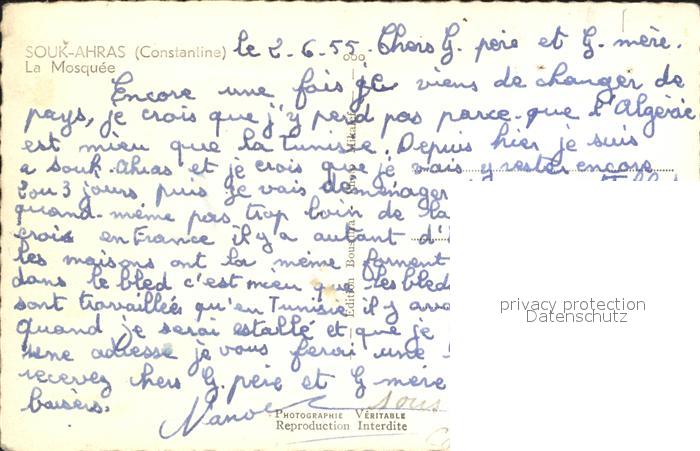 SOUK-AHRAS (Constantine)
La Mosquée
le 2-6-55. Chers G. père et G. mère.
Encore une fois je viens de changer de
pays, je crois que j'y perd pas parce-que l'Algérie
est mieu que la Tunisie. Depuis hier je suis
a souk-Ahras et je crois que je vais y rester encore
2 ou 3 jours puis je vais demenager
quand-même pas trop loin de la
crois en France il y a autant d'
les maisons ont la même forment
dans le bled c'est mieu que les bled
sont travaillées qu'en Tunisie il y
quand je serai estallé et que je
une adresse je vous ferai une
recevez chers G. père et G mère
baisers.
sous
Edition
PHOTOGRAPHIE VÉRITABLE
Reproduction Interdite
privacy protection
Datenschutz